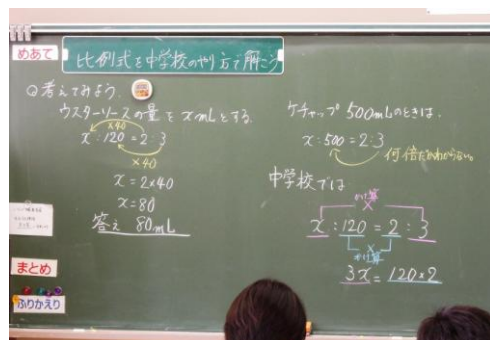 めあて
比例式を中学校のやり方で解こう
Q 考えてみよう。
ウスターソースの量を x mLとする。
×40
x:120=2:3
×40
x=2×40
x=80
答え 80mL
ケチャップ 500mLのときは、
x:500=2:3
何倍だかわからない。
中学校では
かけ算
x:120=2:3
かけ算
3x=120×2
まとめ
ふりかえり